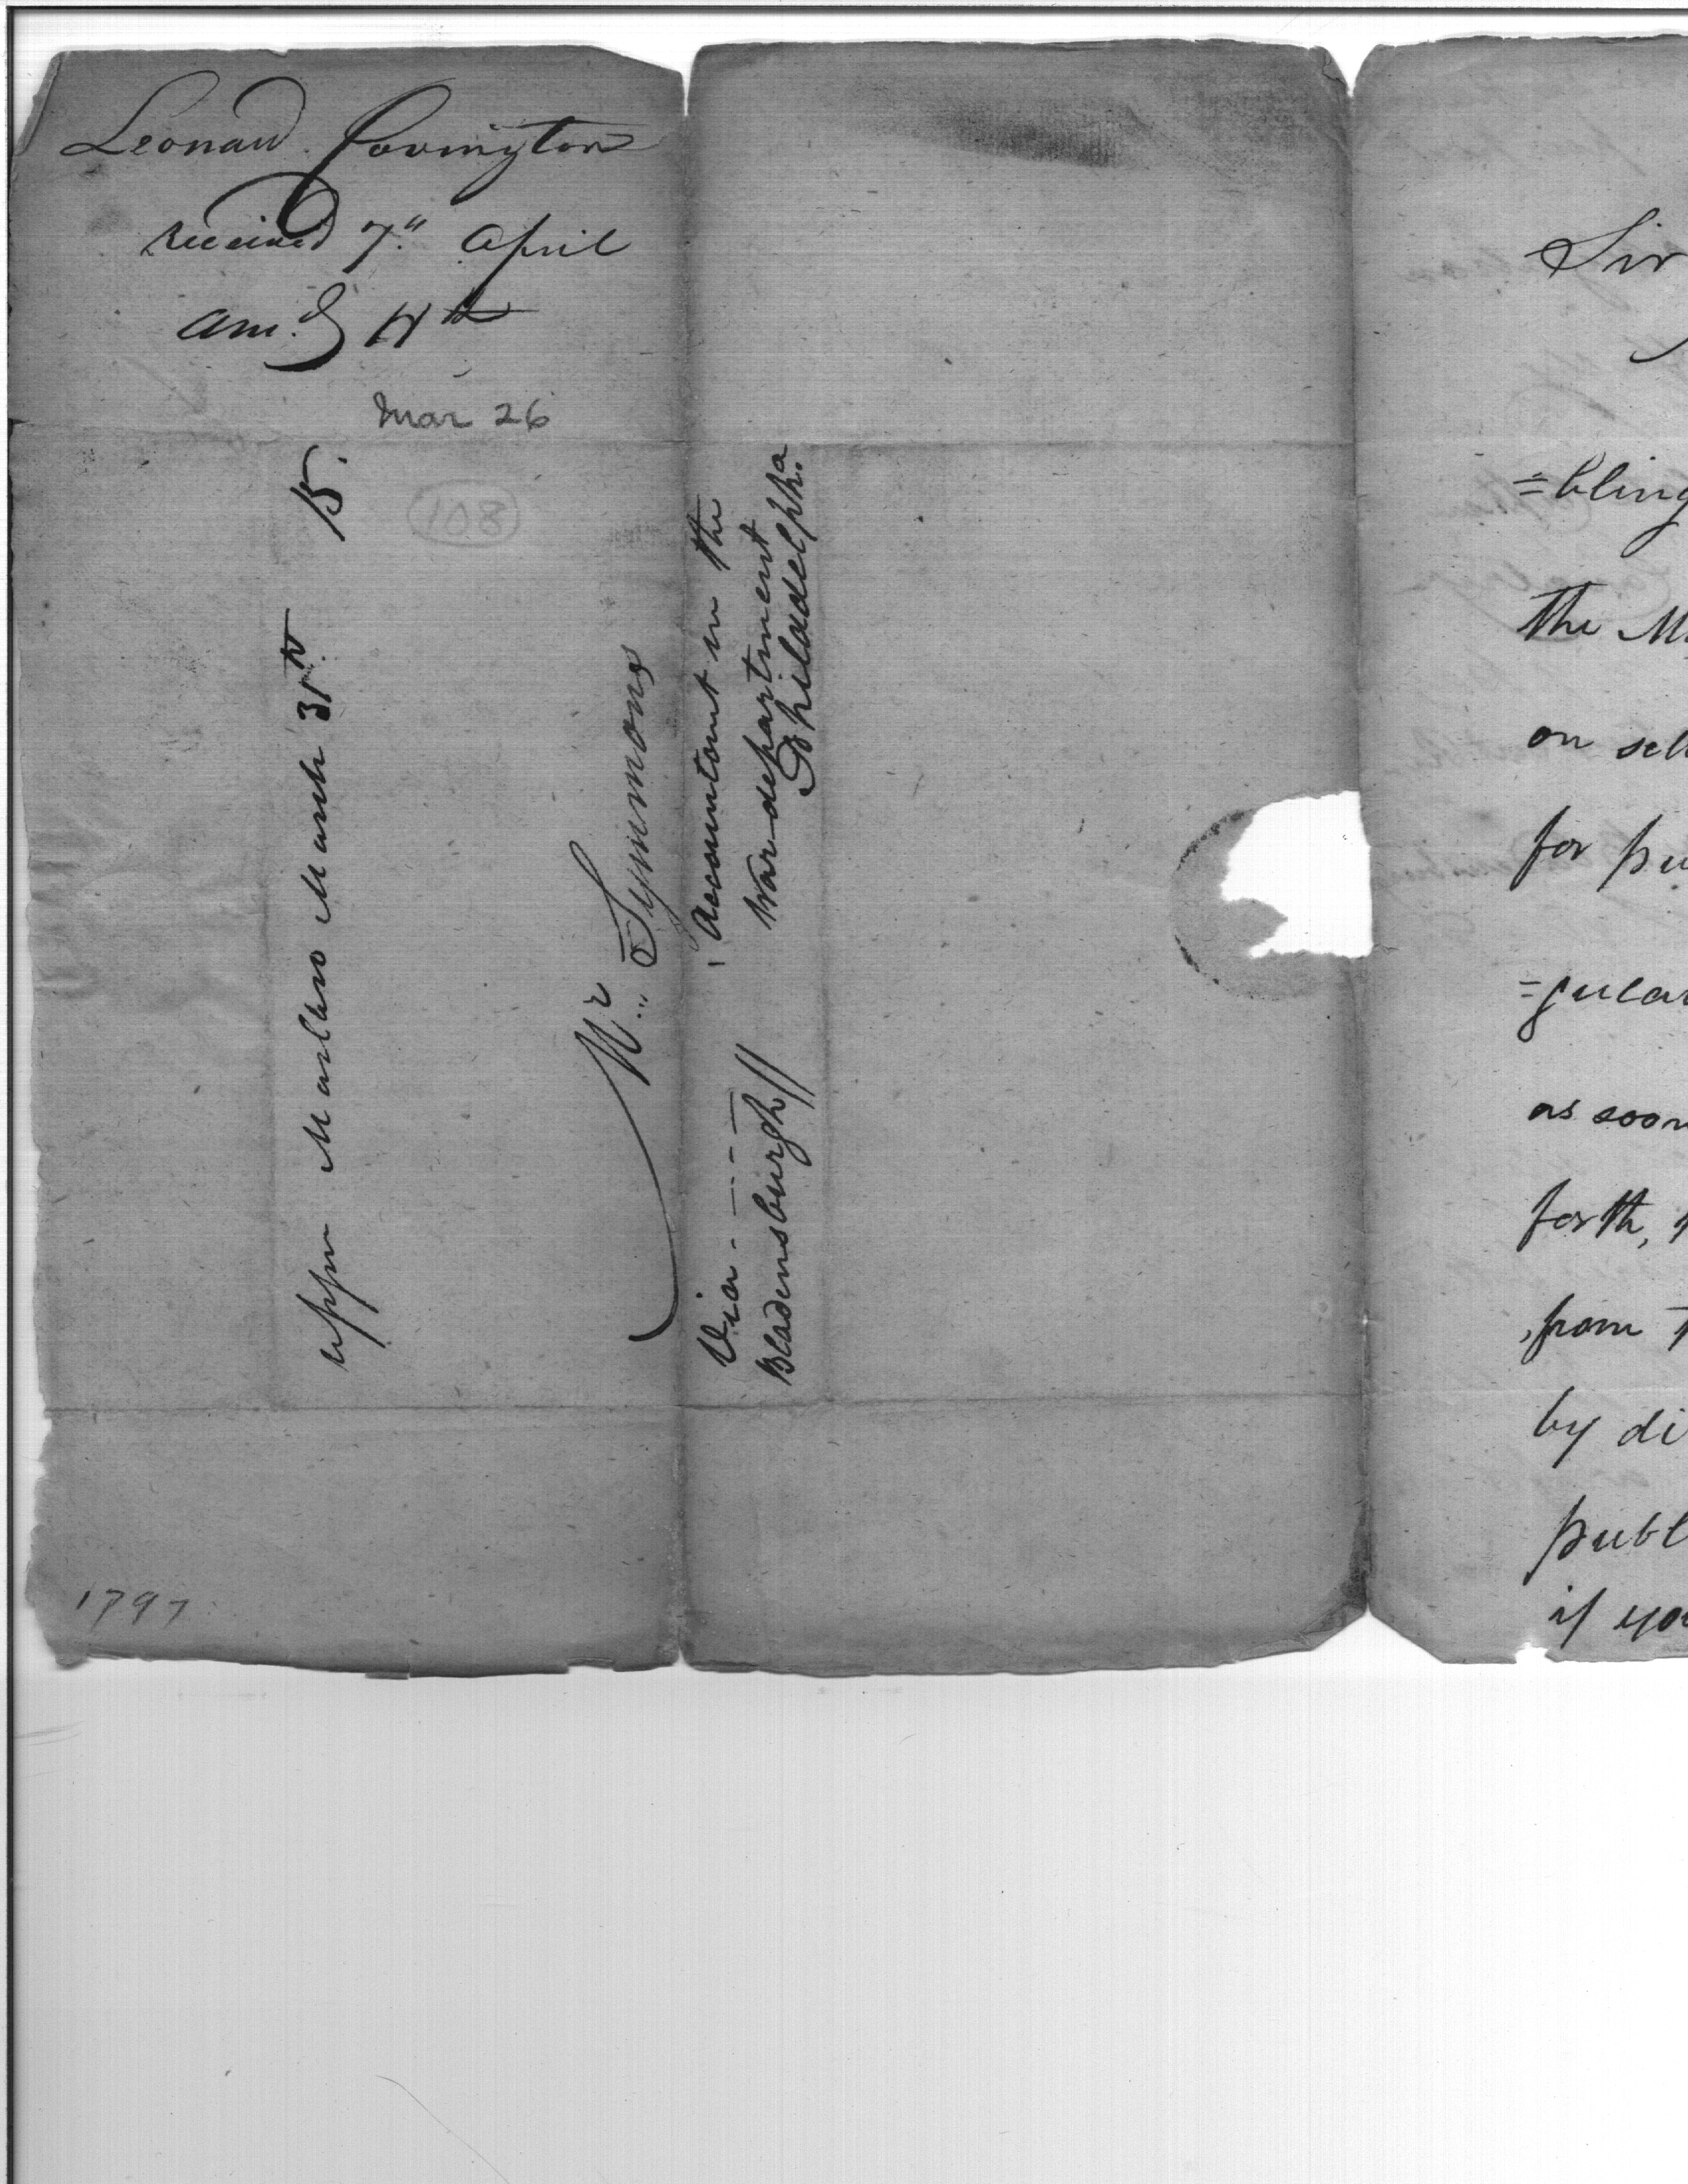 Leonard Covington
received 7th April
Ans.d 11th
Mar 26
108
upper Marlbro March 31st 15.
Mr. Symmons
Accountant in the
War department
Philadelpha.
Via
Bladensburgh
1797
Sir
=bling
the
on
for
as soon
forth,
from
by
if